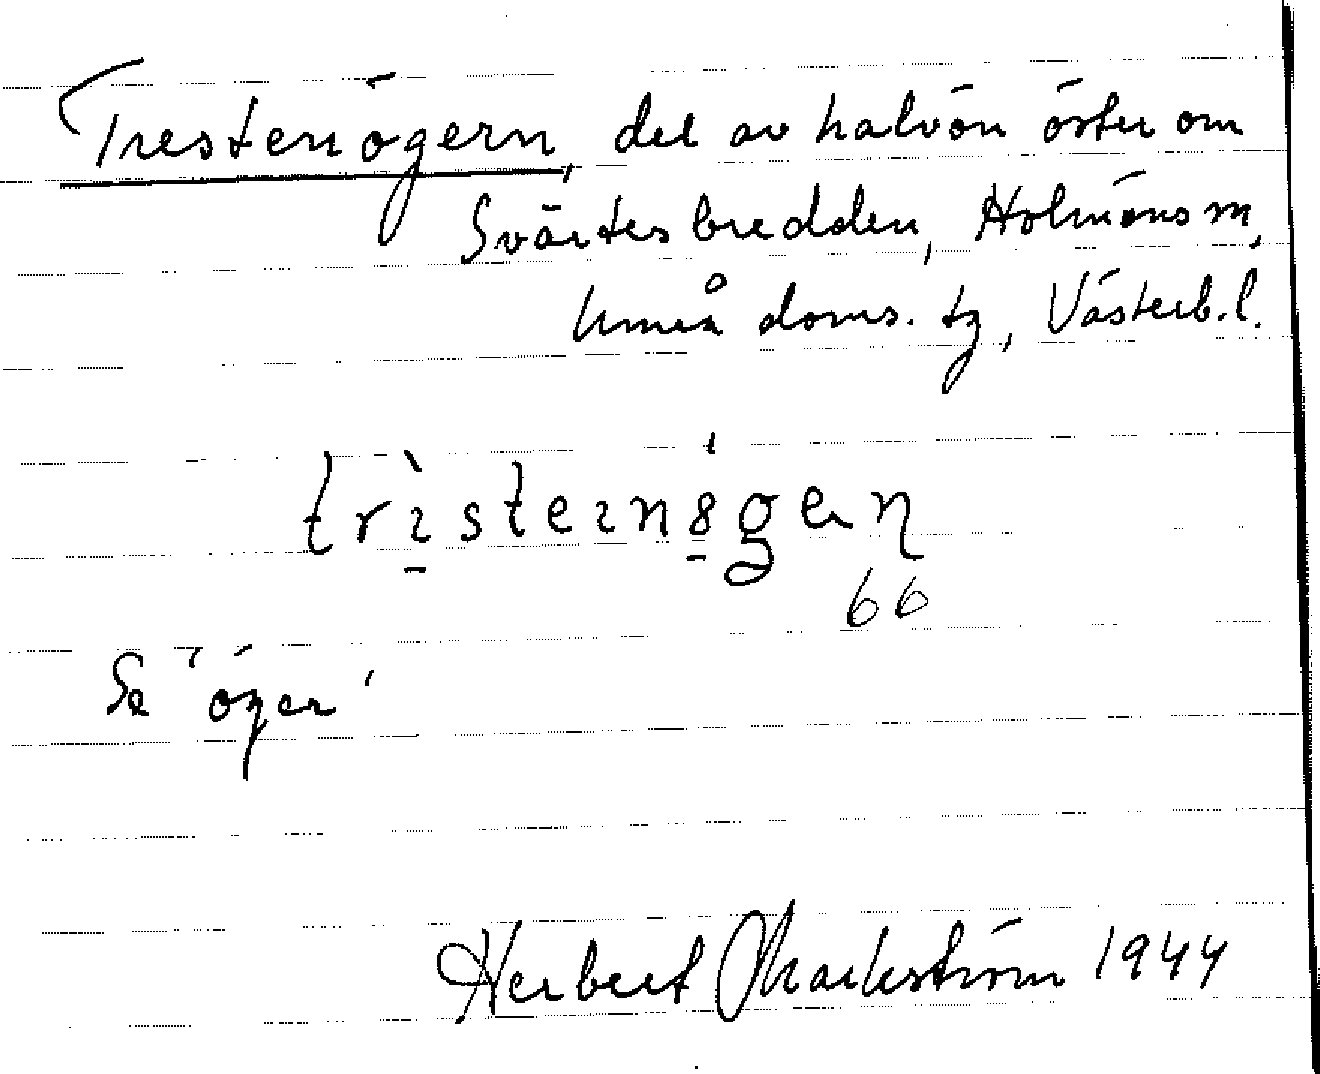 Trestenögern, del av halvön öster om
Svärtesbredden, Holmöns sn,
Umeå doms. tg, Västerb. l.
66
Se "öger"
Herbert Markström 1944